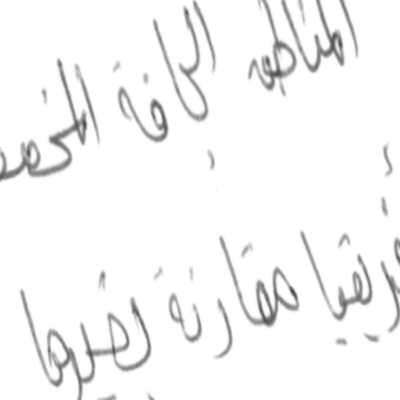 المناطق الجافة المخصص
أفريقيا مقارنة بغيرها